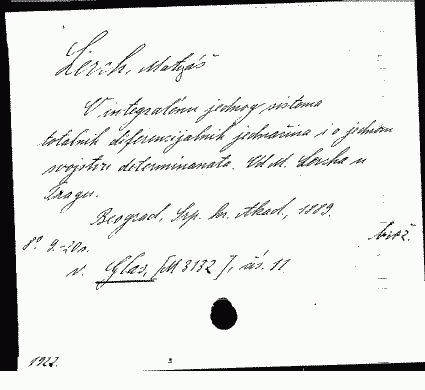 Lerch, Matyáš
O integralenu jednog sistema
totalnih diferencijalnih jednačina i o jednom
svojstvu determinanata. Od M. Lercha u
Pragu.
Beograd, Srp. kr. Akad., 1889.
8° 9.-20 s. broš.
v. Glas, [M 3132], čís. 11.
1922.